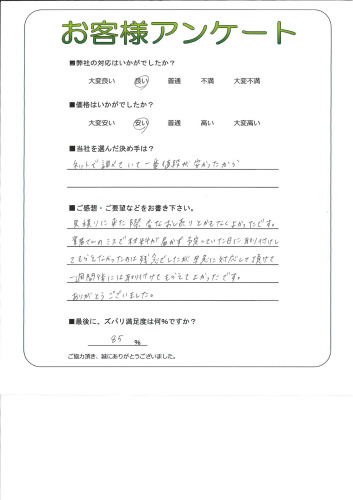 お客様アンケート
■弊社の対応はいかがでしたか？
大変良い 良い 普通 不満 大変不満
■価格はいかがでしたか？
大変安い 安い 普通 高い 大変高い
■当社を選んだ決め手は？
ネットで調べていて一番値段が安かったから
■ご感想・ご要望などをお書き下さい。
見積りに来た際 変なおし売りとかもなく上かったです。
業者さんのミスで材料が届かず予定していた日に取り付けし
てもらえなかったのは残念でしたが早急に対応して頂けて
一週間後には取り付けてもらえて上かったです。
ありがとうございました。
■最後に、ズバリ満足度は何%ですか？
85 %
ご協力頂き、誠にありがとうございました。